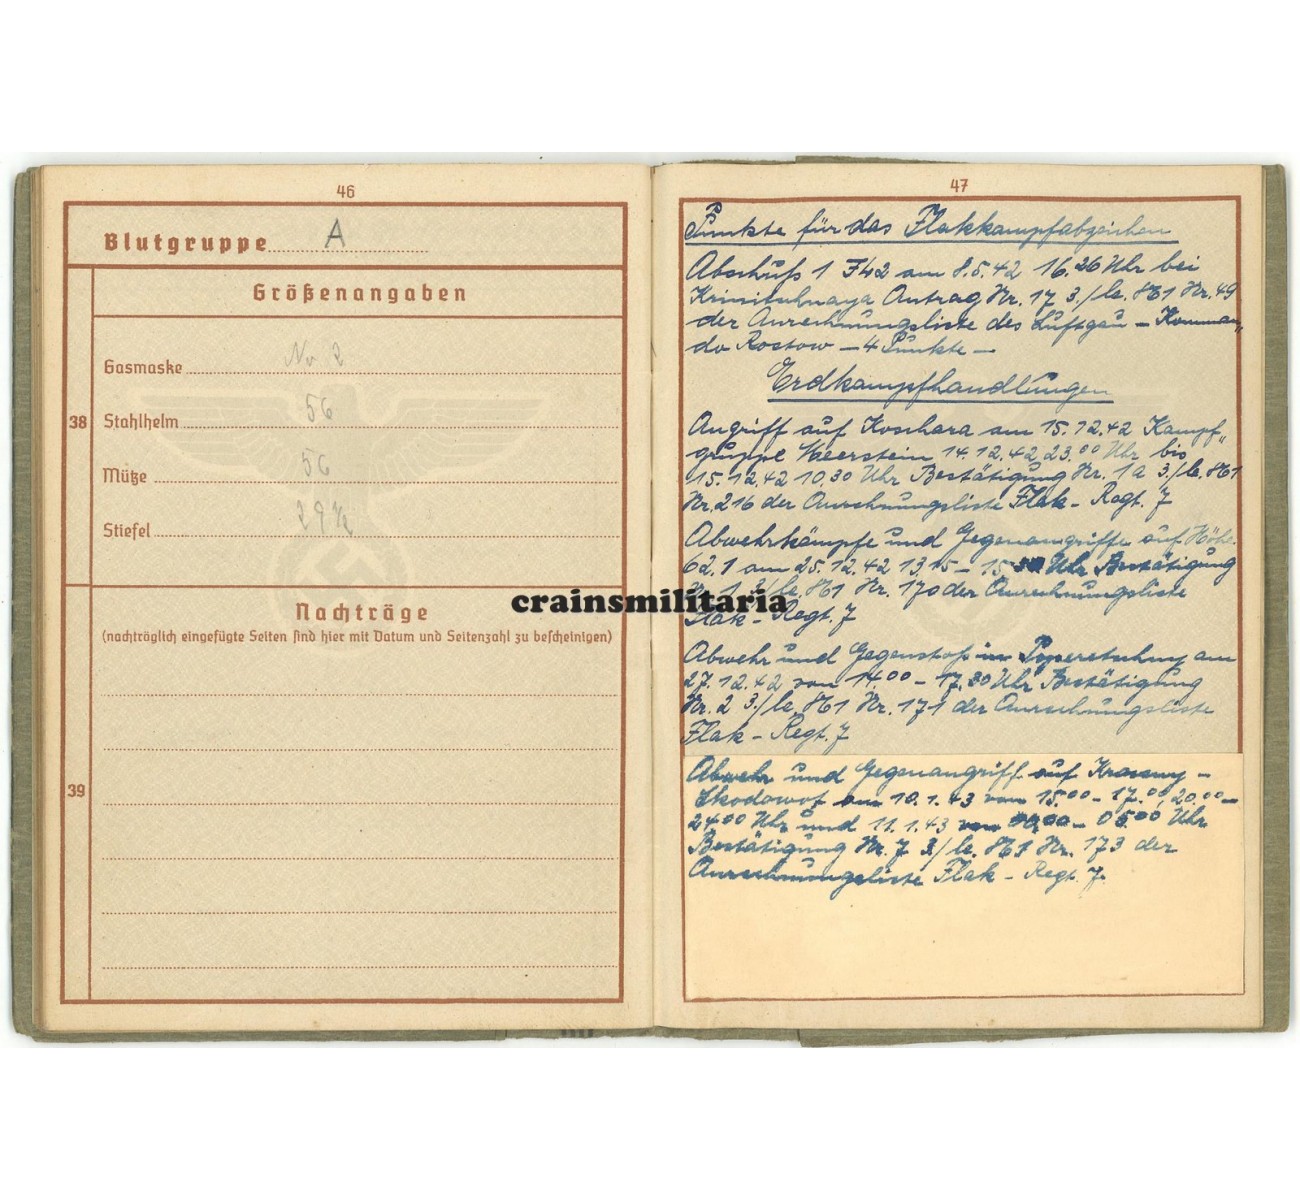 46
Blutgruppe A
Größenangaben
38
Gasmaske No 2
Stahlhelm 56
Mütze 56
Stiefel 29 ½
Nachträge
(nachträglich eingefügte Seiten sind hier mit Datum und Seitenzahl zu bescheinigen)
39
47
Punkte für das Flakkampfabzeichen
Abschuß 1 I42 am 8.5.42 16.26 Uhr bei
Antrag Nr. 17 3./le. 861 Nr. 49
der Anrechnungsliste des Luftgau - Komman„
do Rostow - 4 Punkte -
Erdkampfhandlungen
Angriff auf Koschara am 15.12.42 Kampf„
gruppe 14.12.42 23.00 Uhr bis
15.12.42 10.30 Uhr Bestätigung Nr. 1a 3./le. 861
Nr. 216 der Anrechnungsliste Flak - Regt. 7
Abwehrkämpfe und Gegenangriffe auf Höhe
62.1 am 25.12.42 13.15 - 15 Uhr Bestätigung
Nr. 1 3./le. 861 Nr. 170 der Anrechnungsliste
Flak - Regt. 7
Abwehr und Gegenstoß in am
27.12.42 von 14.00 - 17.30 Uhr Bestätigung
Nr. 2 3./le. 861 Nr. 171 der Anrechnungsliste
Flak - Regt. 7
Abwehr und Gegenangriff auf Krassny -
Skodowof am 10.1.43 von 15.00 - 17.00, 20.00 -
24.00 Uhr und 11.1.43 von 00.00 - 05.00 Uhr
Bestätigung Nr. 7 3./le. 861 Nr. 173 der
Anrechnungsliste Flak - Regt. 7.
crainsmilitaria